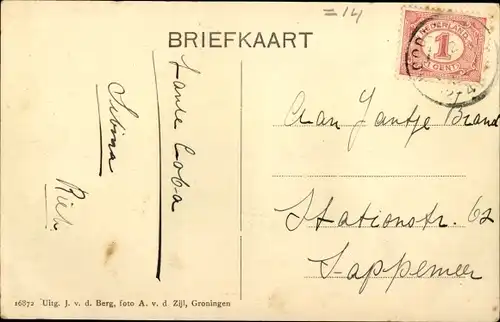 =14
BRIEFKAART
NEDERLAND
1
CENT
Tante Coba
Sibina
Riek
Aan Jantje Brand
Stationstr. 62
Sappemeer
16872 Uitg. J. v. d. Berg, foto A. v. d. Zijl, Groningen